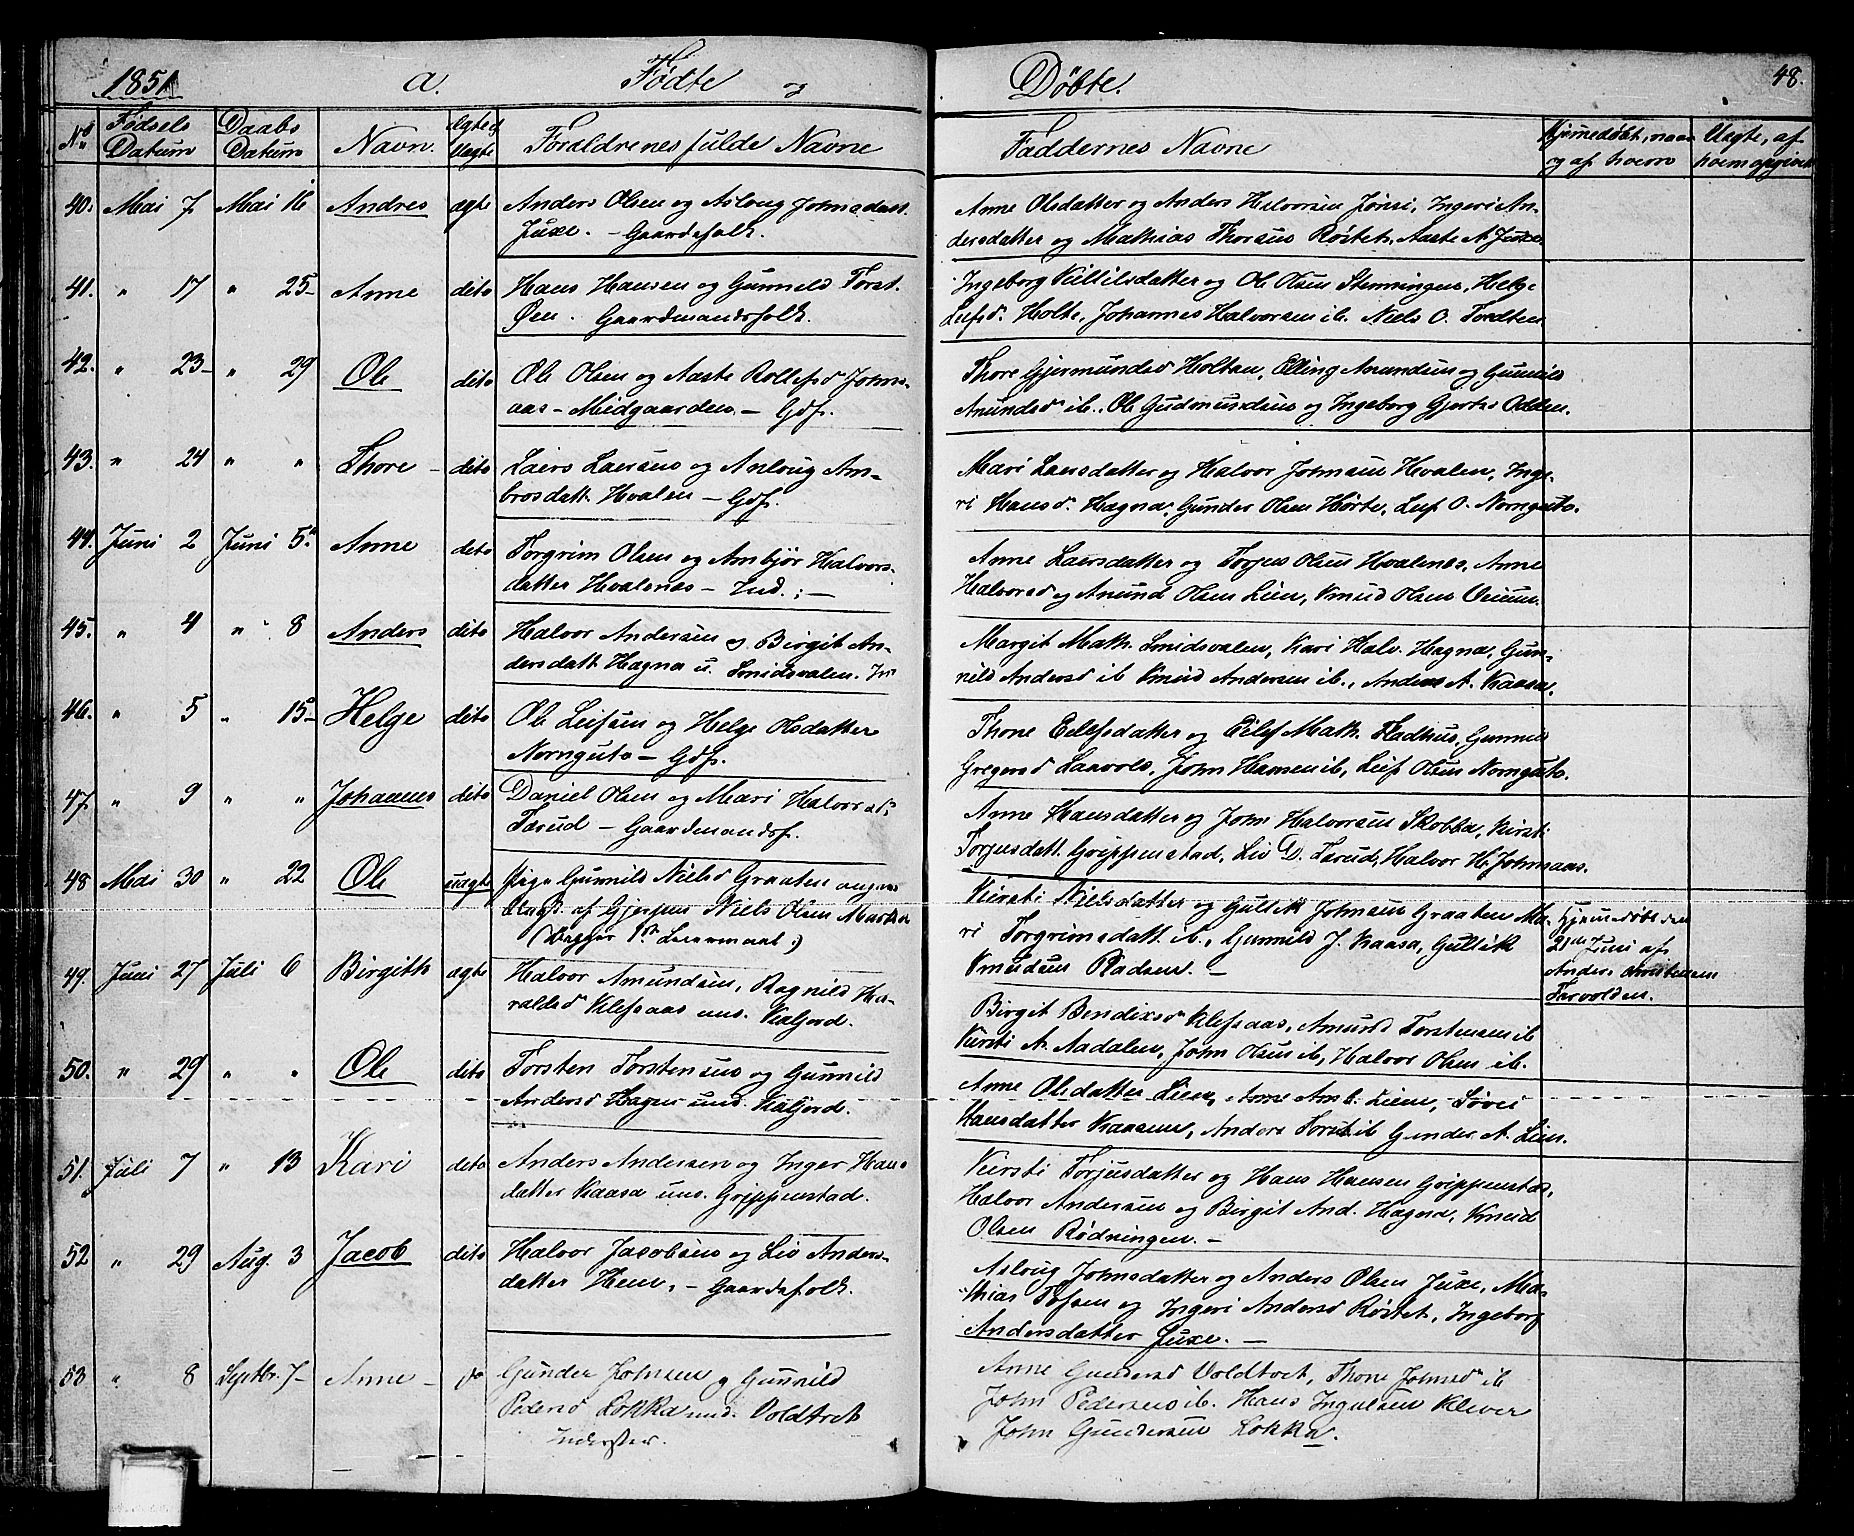 1851 a. Fødte og Døbte. 48.
No Fødsels Datum Daabs Datum Navn. Ægte el. Uægte Forældrenes fulde Navne Faddernes Navne Hjemedøbt, naar og af hvem Uægte, af hvem opgivet
40. Mai 7. Mai 16 Andres ægte Anders Olsen og Asloug Johnsdatt.
Juxe. - Gaardefolk.
Anne Olsdatter og Anders Halvorsen Jønsi, Ingeri An-
dersdatter og Mathias Thorsens Røstet, Aaste A. Juxe
41. " 17 " 25- Anne dito Hans Hansen og Gunnild Torst.
Øen. Gaardmandsfolk.
Ingeborg Kittilsdatter og Ole Olsen Stenningen, Helge
Leifsd. Holte, Johannes Halvorsen ib. Niels O. Tordten
42. " 23- " 29 Ole dito Ole Olsen og Aaste Rollefsd Johns-
aas - Midgaarden. - Gdf.
Thore Gjermundsd Holtan, Elling Anundsen og Gunnild
Anundsd ib., Ole Gudmundsen og Ingeborg Gjertsd Odden.
43. " 24 " " Thore - dito Laers Laersens og Anloug Am-
brosdatt. Hvalen - Gdf.
Mari Laersdatter og Halvor Johnsen Hvalen, Inge-
ri Hansd. Hagna, Gunder Olsen Hørte, Leif O. Nornguto.
44. Juni 2 Juni 5. Anne dito Torgrim Olsen og Anbjør Halvors-
datter Hvalenes - Ind.; -
Anne Laersdatter og Torjus Olsen Hvalenes, Anne
Halvorsd og Anund Olsen Lien, Knud Olsen
45. " 4 " 8 Anders dito Halvor Andersen og Birgit An-
dersdatt. Hagna u. Smidsvalen.
Margit Math. Smidsvalen, Kari Halv. Hagna, Gun-
nild Andersd ib Knud Andersen ib., Anders A. Kaasa.
46. " 5 " 15- Helge dito Ole Leifsen og Helge Olsdatter
Nornguto - Gdf.
Thone Eilefsdatter og Eilef Math. Fladhus, Gunnild
Gregersd Laavold, John Hansen ib, Leif Olsen Nornguto.
47. " 9 " " Johannes dito Daniel Olsen og Mari Halvorsd:
Tarud - Gaardmandsf.
Anne Hansdatter og John Halvorsen Skobba, Kirsti
Torjusdatt. Grippenstad, Liv D. Tarud, Halvor H. Johnsaas.
48 Mai 30 " 22 Ole uægte Pige Gunnild Nielsd Graaten
af Gjerpen Niels Olsen
(Begges 1ste Leiermaal.)
Kirsti Nielsdatter og Gullik Johnsen Graaten Ma-
ri Torgrimsdatt. ib., Gunnild J. Kaasa, Gullik
Knudsen Radsens. -
Hjemedøbt den
21de Juni af
Anders
Tarvolden.
49. Juni 27 Juli 6 Birgith ægte Halvor Amundsen, Ragnild Ha-
raldsd Klefsaas und. Kalfjord.
Birgit Bendixsd Klefsaas, Amund Torstensen ib
Kirsti A. Aadalen, John Olsen ib, Halvor Olsen ib.
50. " 29 " " Ole dito Torsten Torstensens og Gunnild
Andersd Hagna und. Kalfjord.
Anne Olsdatter Lien, Anne Amb. Lien, Søvei
Hansdatter Kaasene, Anders Torst. ib Gunder A. Lien.
51. Juli 7 " 13 Kari dito Anders Andersen og Inger Hans-
datter Kaasa und. Grippenstad.
Kirsti Torjusdatter og Hans Hansen Grippenstad,
Halvor Andersen og Birgit And. Hagna, Knud
Olsen Rødningen. -
52 " 29 Aug. 3 Jacob dito Halvor Jacobsens og Liv Anders-
datter Hem, - Gaardefolk.
Asloug Johnsdatter og Anders Olsen Juxe, Ma-
thias Tofsen og Ingeri Andersd Røstet, Ingeborg
Andersdatter Juxe. -
53 " 8 Septbr. 7- Anne - do Gunder Johnsen og Gunnild
Pedersd Lokka und. Voldtvet
Inderster.
Anne Gundersd Voldtvet, Thone Johnsd ib
John Pedersens ib. Hans Ingulsen Klever
John Gundersen Lokka.